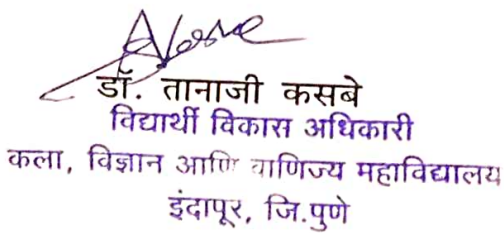 डॉ. तानाजी कसबे
विद्यार्थी विकास अधिकारी
कला, विज्ञान आणि वाणिज्य महाविद्यालय
इंदापूर, जि.पुणे